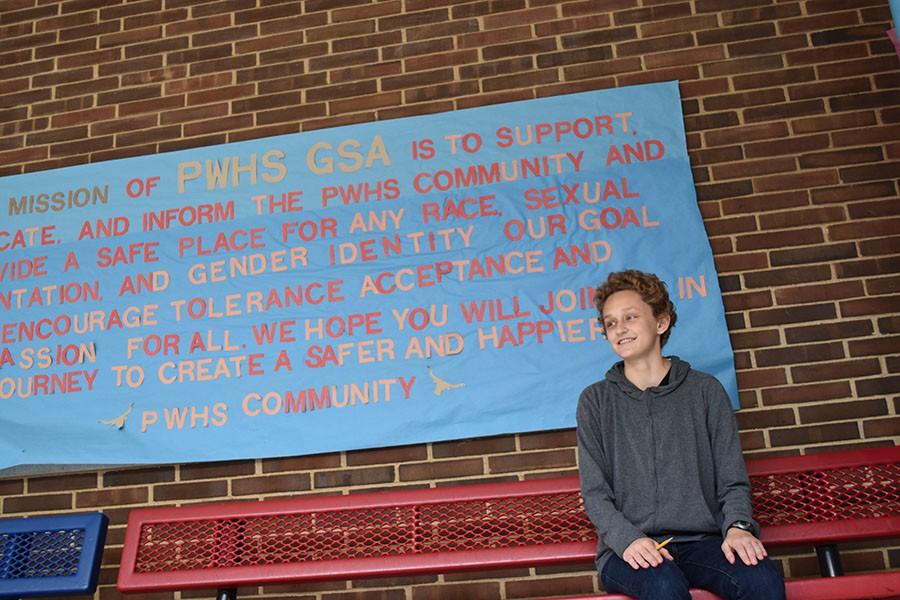 MISSION OF PWHS GSA IS TO SUPPORT,
CATE, AND INFORM THE PWHS COMMUNITY AND
VIDE A SAFE PLACE FOR ANY RACE, SEXUAL
NTATION, AND GENDER IDENTITY OUR GOAL
ENCOURAGE TOLERANCE ACCEPTANCE AND
ASSION FOR ALL. WE HOPE YOU WILL JOIN IN
OURNEY TO CREATE A SAFER AND HAPPIER
PWHS COMMUNITY